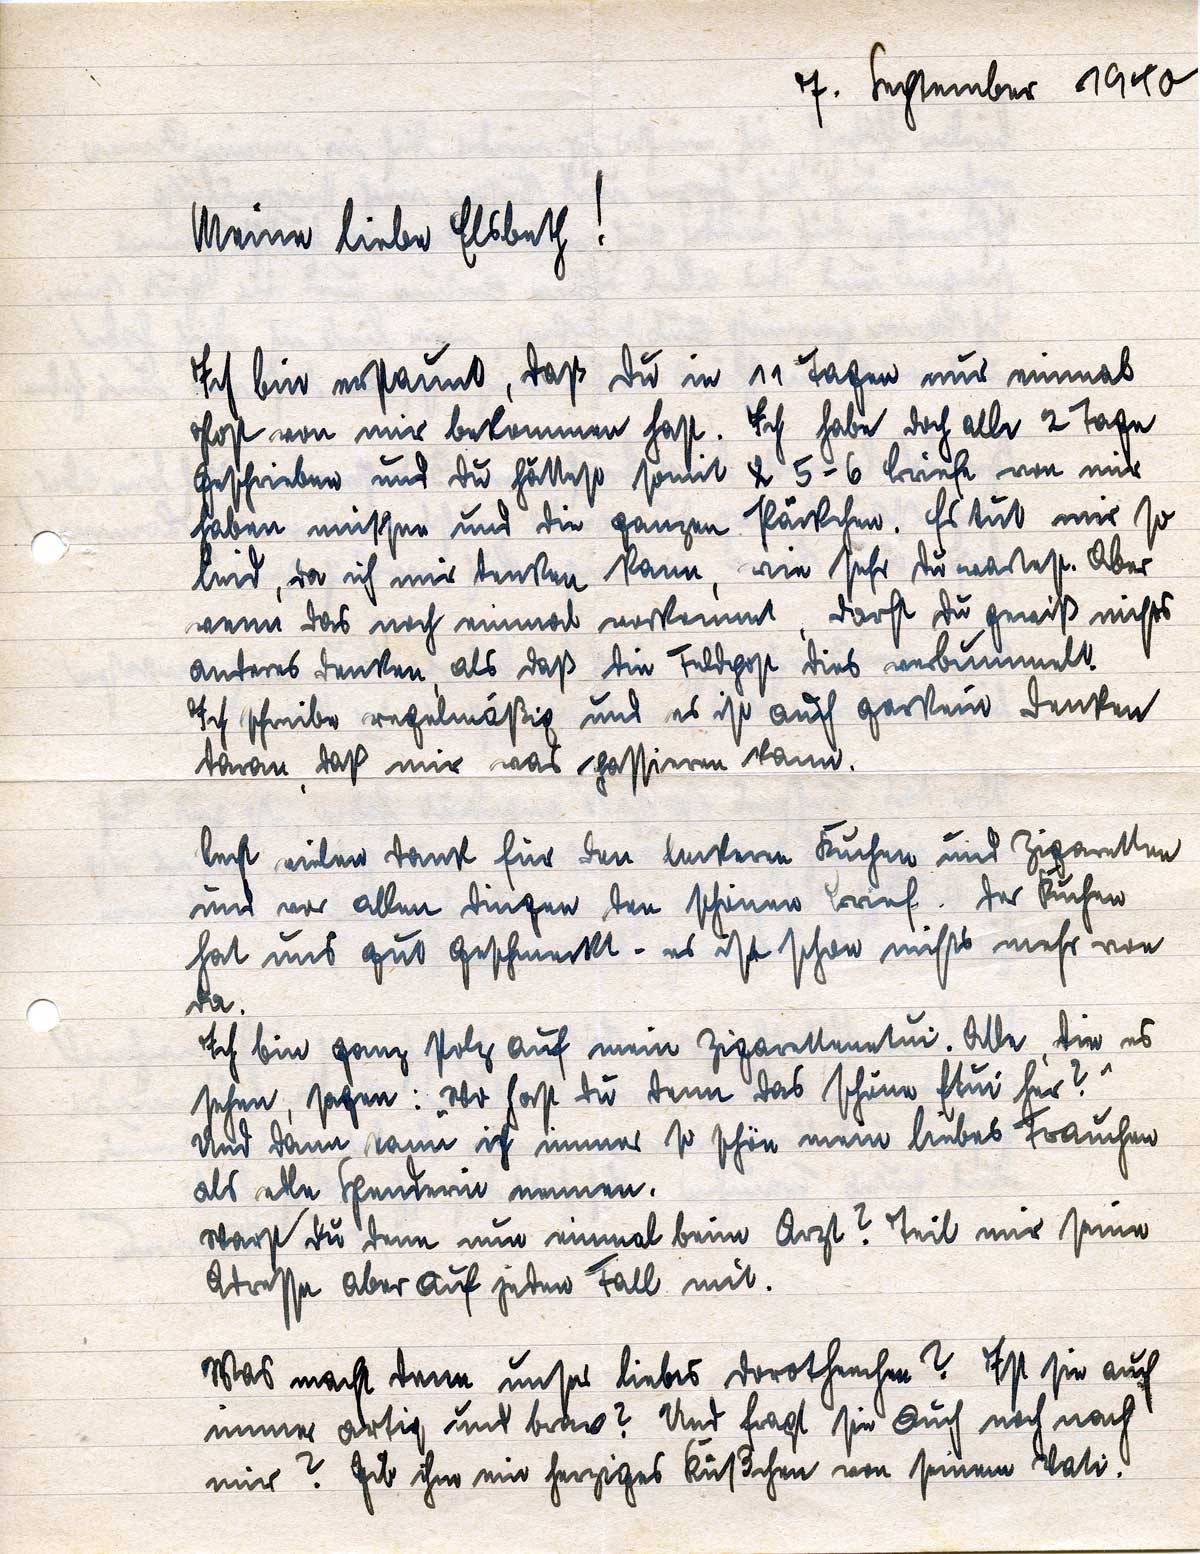 7. September 1940
Meine liebe Elsbeth!
Ich bin erstaunt, daß Du in 11 Tagen nur einmal
Post von mir bekommen hast. Ich habe doch alle 2 Tage
geschrieben und Du hättest somit 5-6 Briefe von mir
haben müssen und die ganzen Päckchen. Es tut mir so
leid, da ich mir denken kann, wie sehr Du wartest. Aber
wenn das noch einmal vorkommt, darfst Du gewiß nichts
anderes denken, als daß die Feldpost dies verbummelt.
Ich schreibe regelmäßig und es ist auch garkein Denken
daran, daß mir was passieren kann.
Recht vielen Dank für den leckeren Kuchen und Zigaretten
und vor allen Dingen den schönen Brief. Der Kuchen
hat uns gut geschmeckt - es ist schon nichts mehr von
da.
Ich bin ganz stolz auf mein Zigarettenetui. Alle, die es
sehen, sagen: „Wo hast Du denn das schöne Etui her?"
Und dann kann ich immer so schön mein liebes Frauchen
als edle Spenderin nennen.
Warst Du denn nun einmal beim Arzt? Teil mir seine
Adresse aber auf jeden Fall mit.
Was macht denn unser liebes Dorotheachen? Ist sie auch
immer artig und brav? Und fragt sie auch noch nach
mir? Gib ihm ein herziges Küßchen von seinem Vati.